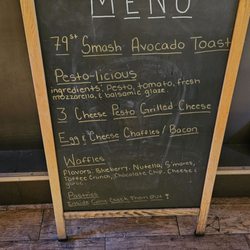 MENU
79st Smash Avocado Toast
Pesto-licious
ingredients: Pesto, tomato, fresh
mozzarella, & balsamic glaze
3 Cheese Pesto Grilled Cheese
Egg & Cheese Chaffles / Bacon
Waffles
Flavors: Blueberry, Nutella, S'mores,
Toffee Crunch, Chocolate Chip, Cheese &
Pastries